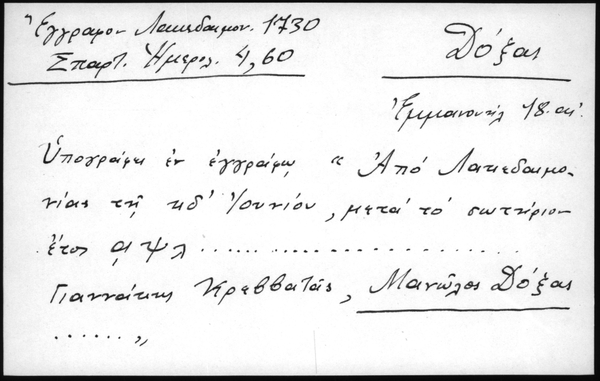 Ἔγγραφον Λακεδαιμον. 1730
Σπαρτ. Ἡμερολ. 4,60
Δόξας
Ἐμμανουήλ 18. αἰ.
Ὑπογράφει ἐν ἐγγράφῳ "Ἀπό Λακεδαιμο-
νίας τῇ κδ' Ἰουνίου, μετά τό σωτήριον
ἔτος αψλ ........................
Γιαννάκης Κρεββατᾶς, Μανῶλος Δόξας
......"